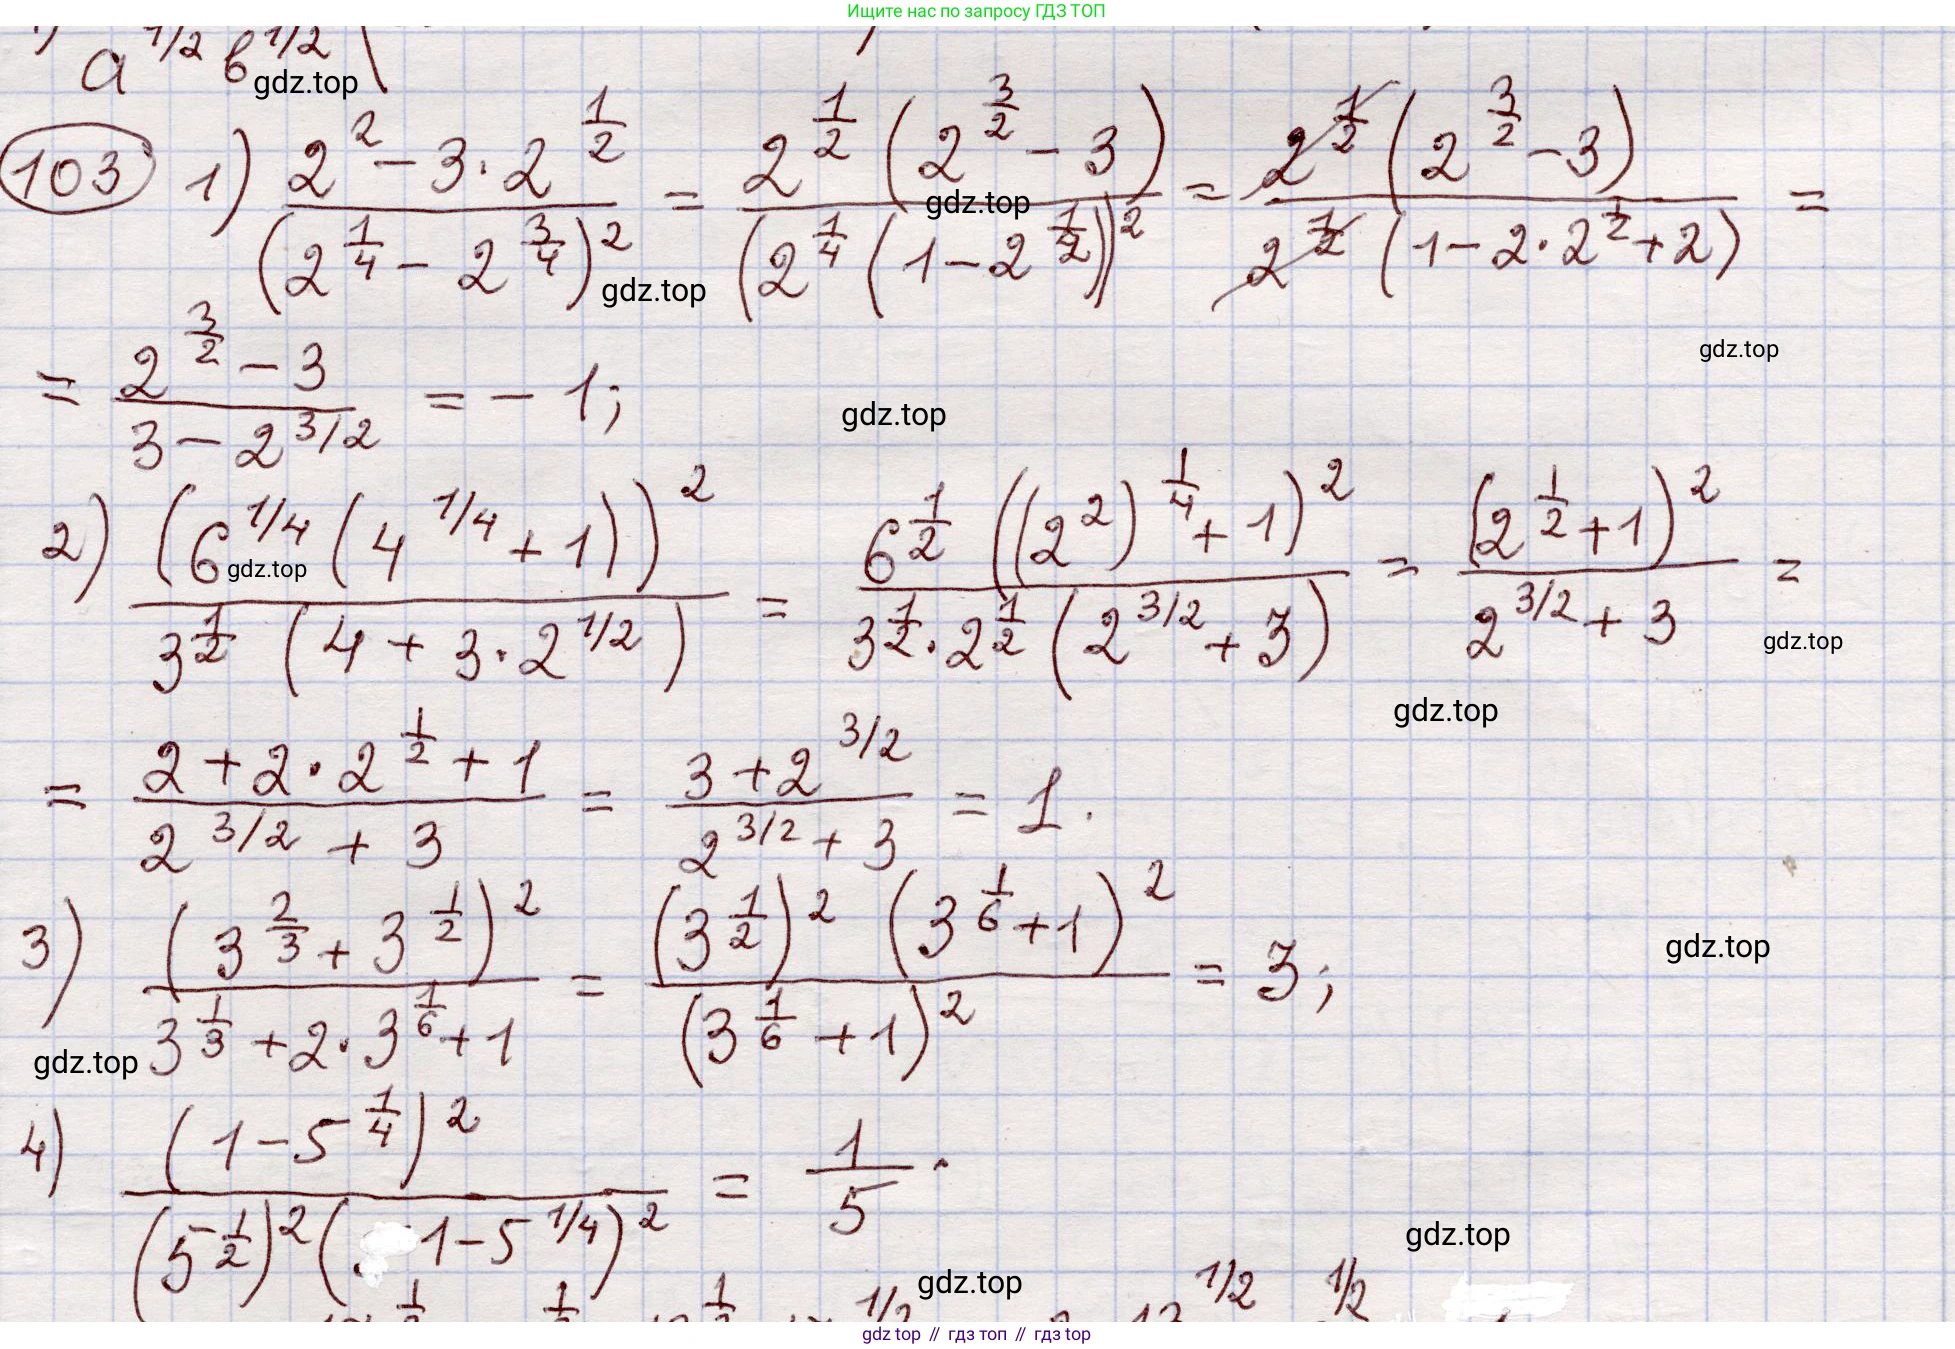 Ищите нас по запросу ГДЗ ТОП
a^{1/2} b^{1/2} (
gdz.top
103 1) \frac{2^2 - 3 \cdot 2^{\frac{1}{2}}}{(2^{\frac{1}{4}} - 2^{\frac{3}{4}})^2} = \frac{2^{\frac{1}{2}} (2^{\frac{3}{2}} - 3)}{(2^{\frac{1}{4}} (1 - 2^{\frac{1}{2}}))^2} = \frac{2^{\frac{1}{2}} (2^{\frac{3}{2}} - 3)}{2^{\frac{1}{2}} (1 - 2 \cdot 2^{\frac{1}{2}} + 2)} =
gdz.top
gdz.top
gdz.top
= \frac{2^{\frac{3}{2}} - 3}{3 - 2^{3/2}} = - 1;
gdz.top
2) \frac{(6^{1/4} (4^{1/4} + 1))^2}{3^{\frac{1}{2}} (4 + 3 \cdot 2^{1/2})} = \frac{6^{\frac{1}{2}} ((2^2)^{\frac{1}{4}} + 1)^2}{3^{\frac{1}{2}} \cdot 2^{\frac{1}{2}} (2^{3/2} + 3)} = \frac{(2^{\frac{1}{2}} + 1)^2}{2^{3/2} + 3} =
gdz.top
gdz.top
gdz.top
= \frac{2 + 2 \cdot 2^{\frac{1}{2}} + 1}{2^{3/2} + 3} = \frac{3 + 2^{3/2}}{2^{3/2} + 3} = 1.
3) \frac{(3^{\frac{2}{3}} + 3^{\frac{1}{2}})^2}{3^{\frac{1}{3}} + 2 \cdot 3^{\frac{1}{6}} + 1} = \frac{(3^{\frac{1}{2}})^2 (3^{\frac{1}{6}} + 1)^2}{(3^{\frac{1}{6}} + 1)^2} = 3;
gdz.top
gdz.top
4) \frac{(1 - 5^{\frac{1}{4}})^2}{(5^{-\frac{1}{2}})^2 (1 - 5^{1/4})^2} = \frac{1}{5}.
gdz.top
gdz.top
gdz top // гдз топ // гдз top